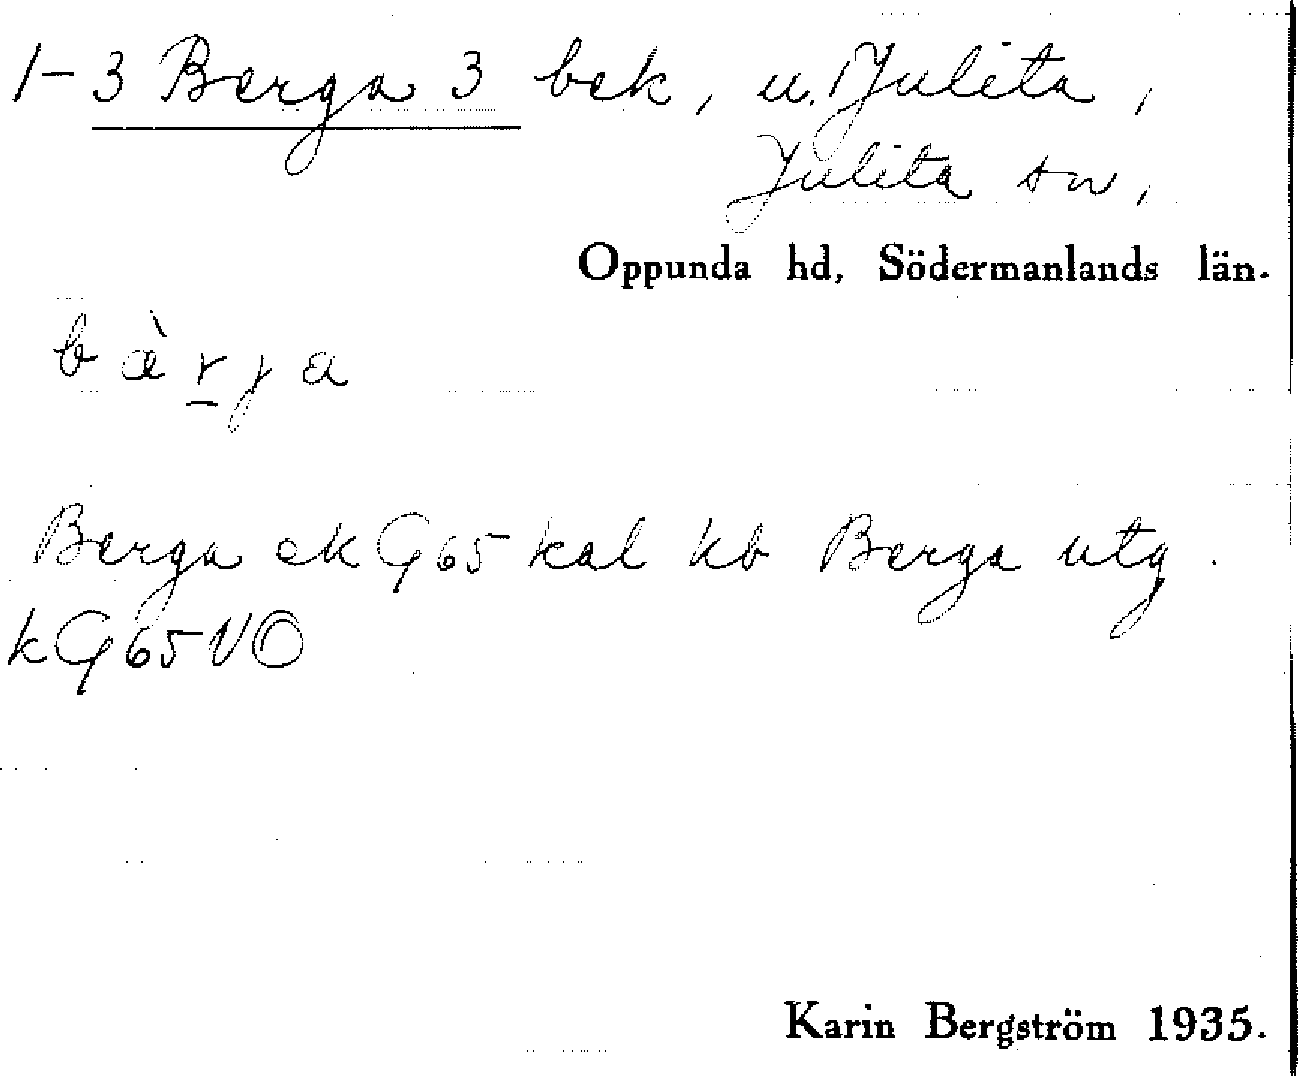 1-3 Berga 3 bek, u. Julita,
Julita sn,
Oppunda hd, Södermanlands län.
bàrja
Berga ek G65 kal kb Berga utg.
kG65VO
Karin Bergström 1935.